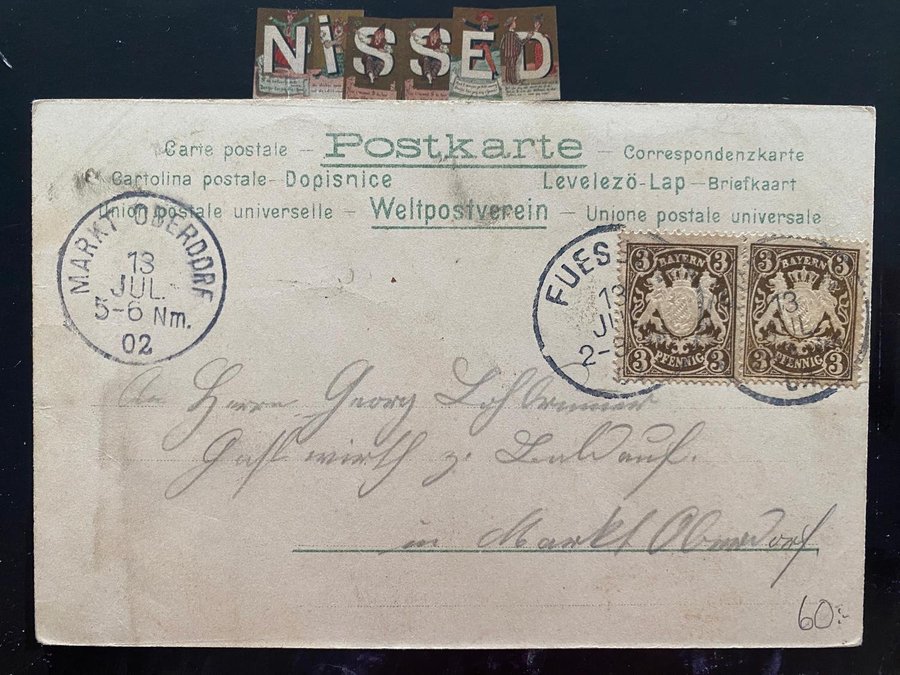 NiSSED
Carte postale – Postkarte – Correspondenzkarte
Cartolina postale - Dopisnice Levelezö-Lap – Briefkaart
Union postale universelle – Weltpostverein – Unione postale universale
MARKT OBERDORF
13
JUL.
5-6 Nm.
02
FUESS
13
JU
2-3
3 BAYERN 3
3 PFENNIG 3
3 BAYERN 3
3 PFENNIG 3
13
UL
An Herrn Georg
Gastwirth z. Baldauf.
in Markt Oberdorf
60:-